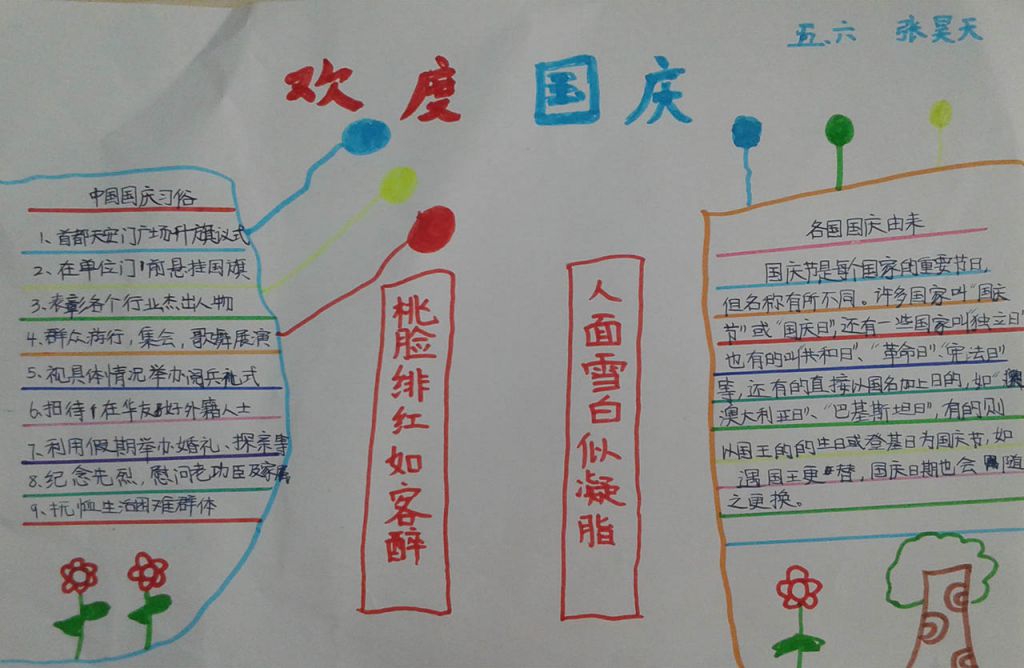 五.六 张昊天
欢度国庆
中国国庆习俗
1、首都天安门广场升旗仪式
2、在单位门前悬挂国旗
3、表彰各个行业杰出人物
4、群众游行，集会，歌舞展演
5、视具体情况举办阅兵礼式
6、招待在华友好外籍人士
7、利用假期举办婚礼、探亲等
8、纪念先烈，慰问老功臣及家属
9、抚恤生活困难群体
桃脸绯红如客醉
人面雪白似凝脂
各国国庆由来
国庆节是每个国家的重要节日，
但名称有所不同。许多国家叫“国庆
节”或“国庆日”，还有一些国家叫“独立日”
也有的叫“共和日”、“革命日”、“宪法日”
等，还有的直接以国名加上日的，如“
澳大利亚日”、“巴基斯坦日”，有的则
以国王的的生日或登基日为国庆节，如
遇国王更替，国庆日期也会随
之更换。